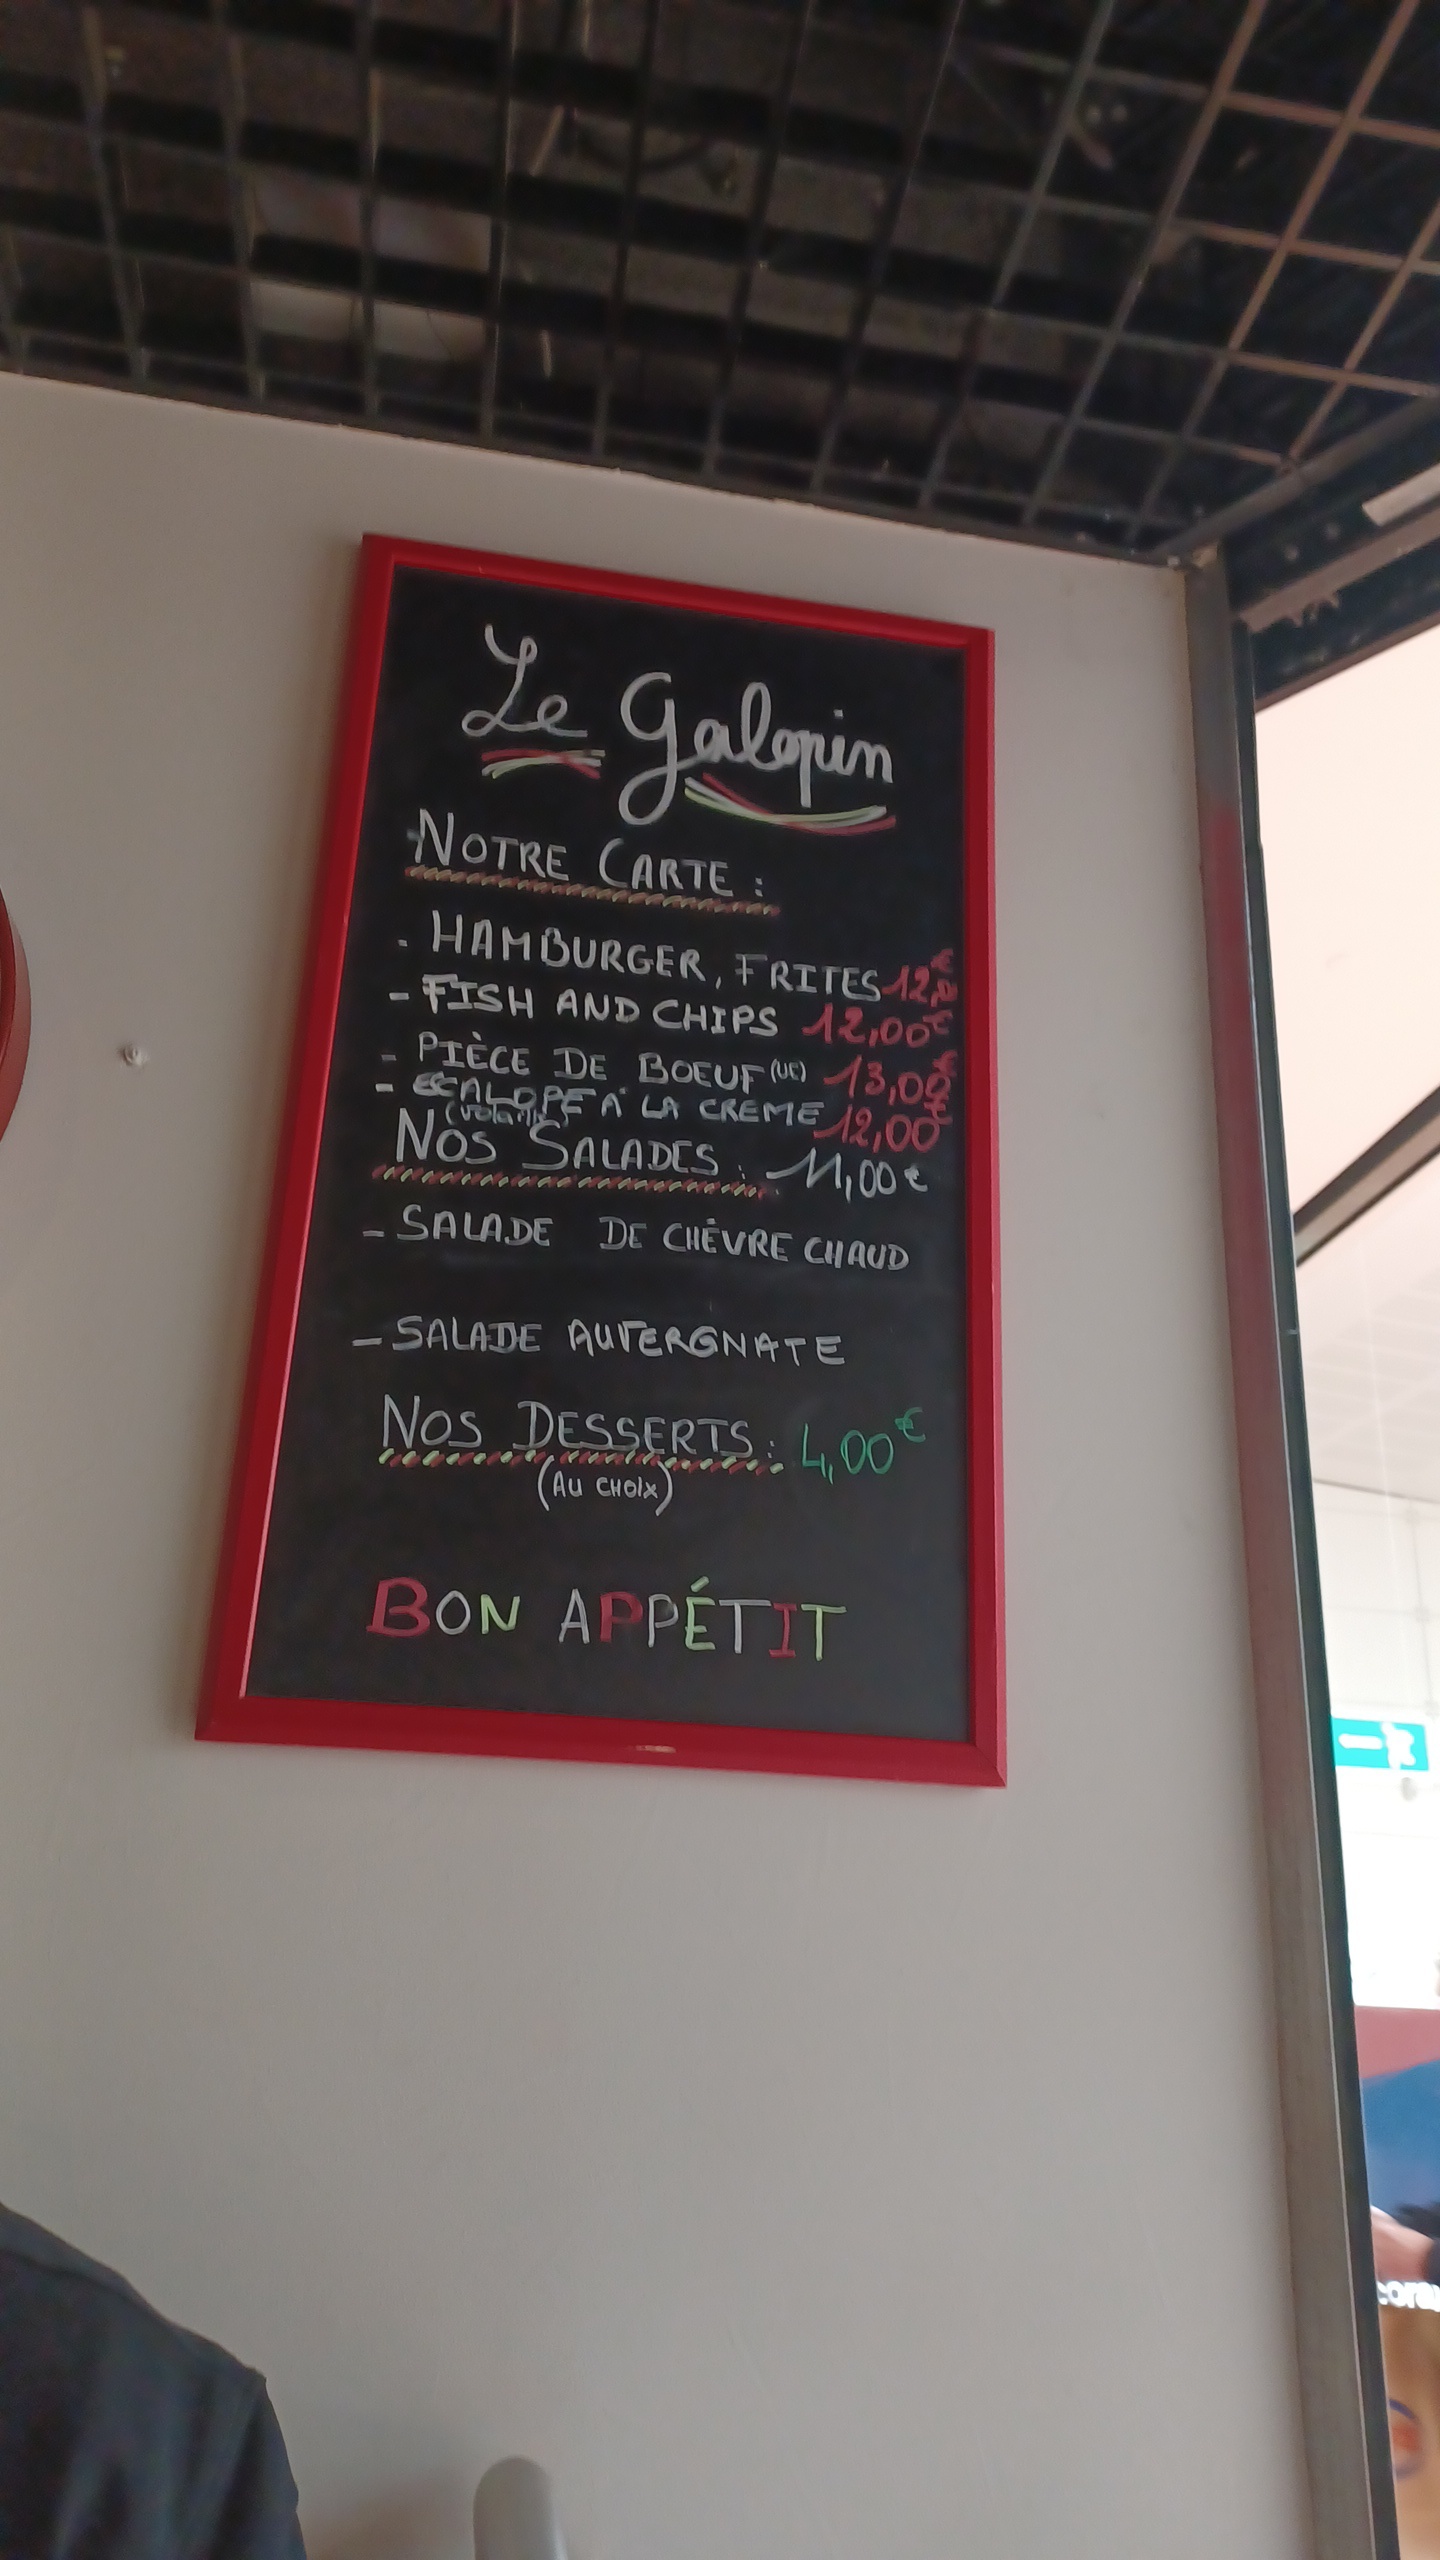 Le Galopin
NOTRE CARTE :
- HAMBURGER, FRITES 12,00€
- FISH AND CHIPS 12,00€
- PIÈCE DE BOEUF (UE) 13,00€
- ESCALOPE À LA CREME 12,00€
(volaille)
NOS SALADES : 11,00€
- SALADE DE CHÈVRE CHAUD
- SALADE AUVERGNATE
NOS DESSERTS : 4,00€
(AU CHOIX)
BON APPÉTIT